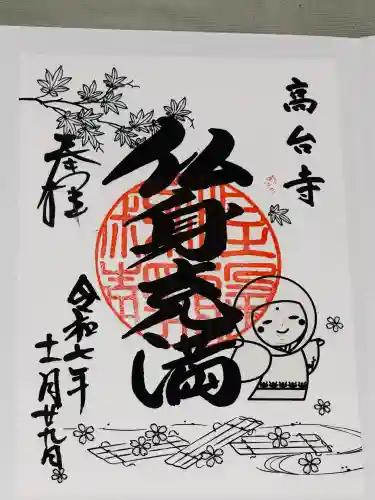 高台寺
佛身充満
奉拝
令和七年
十一月廿九日